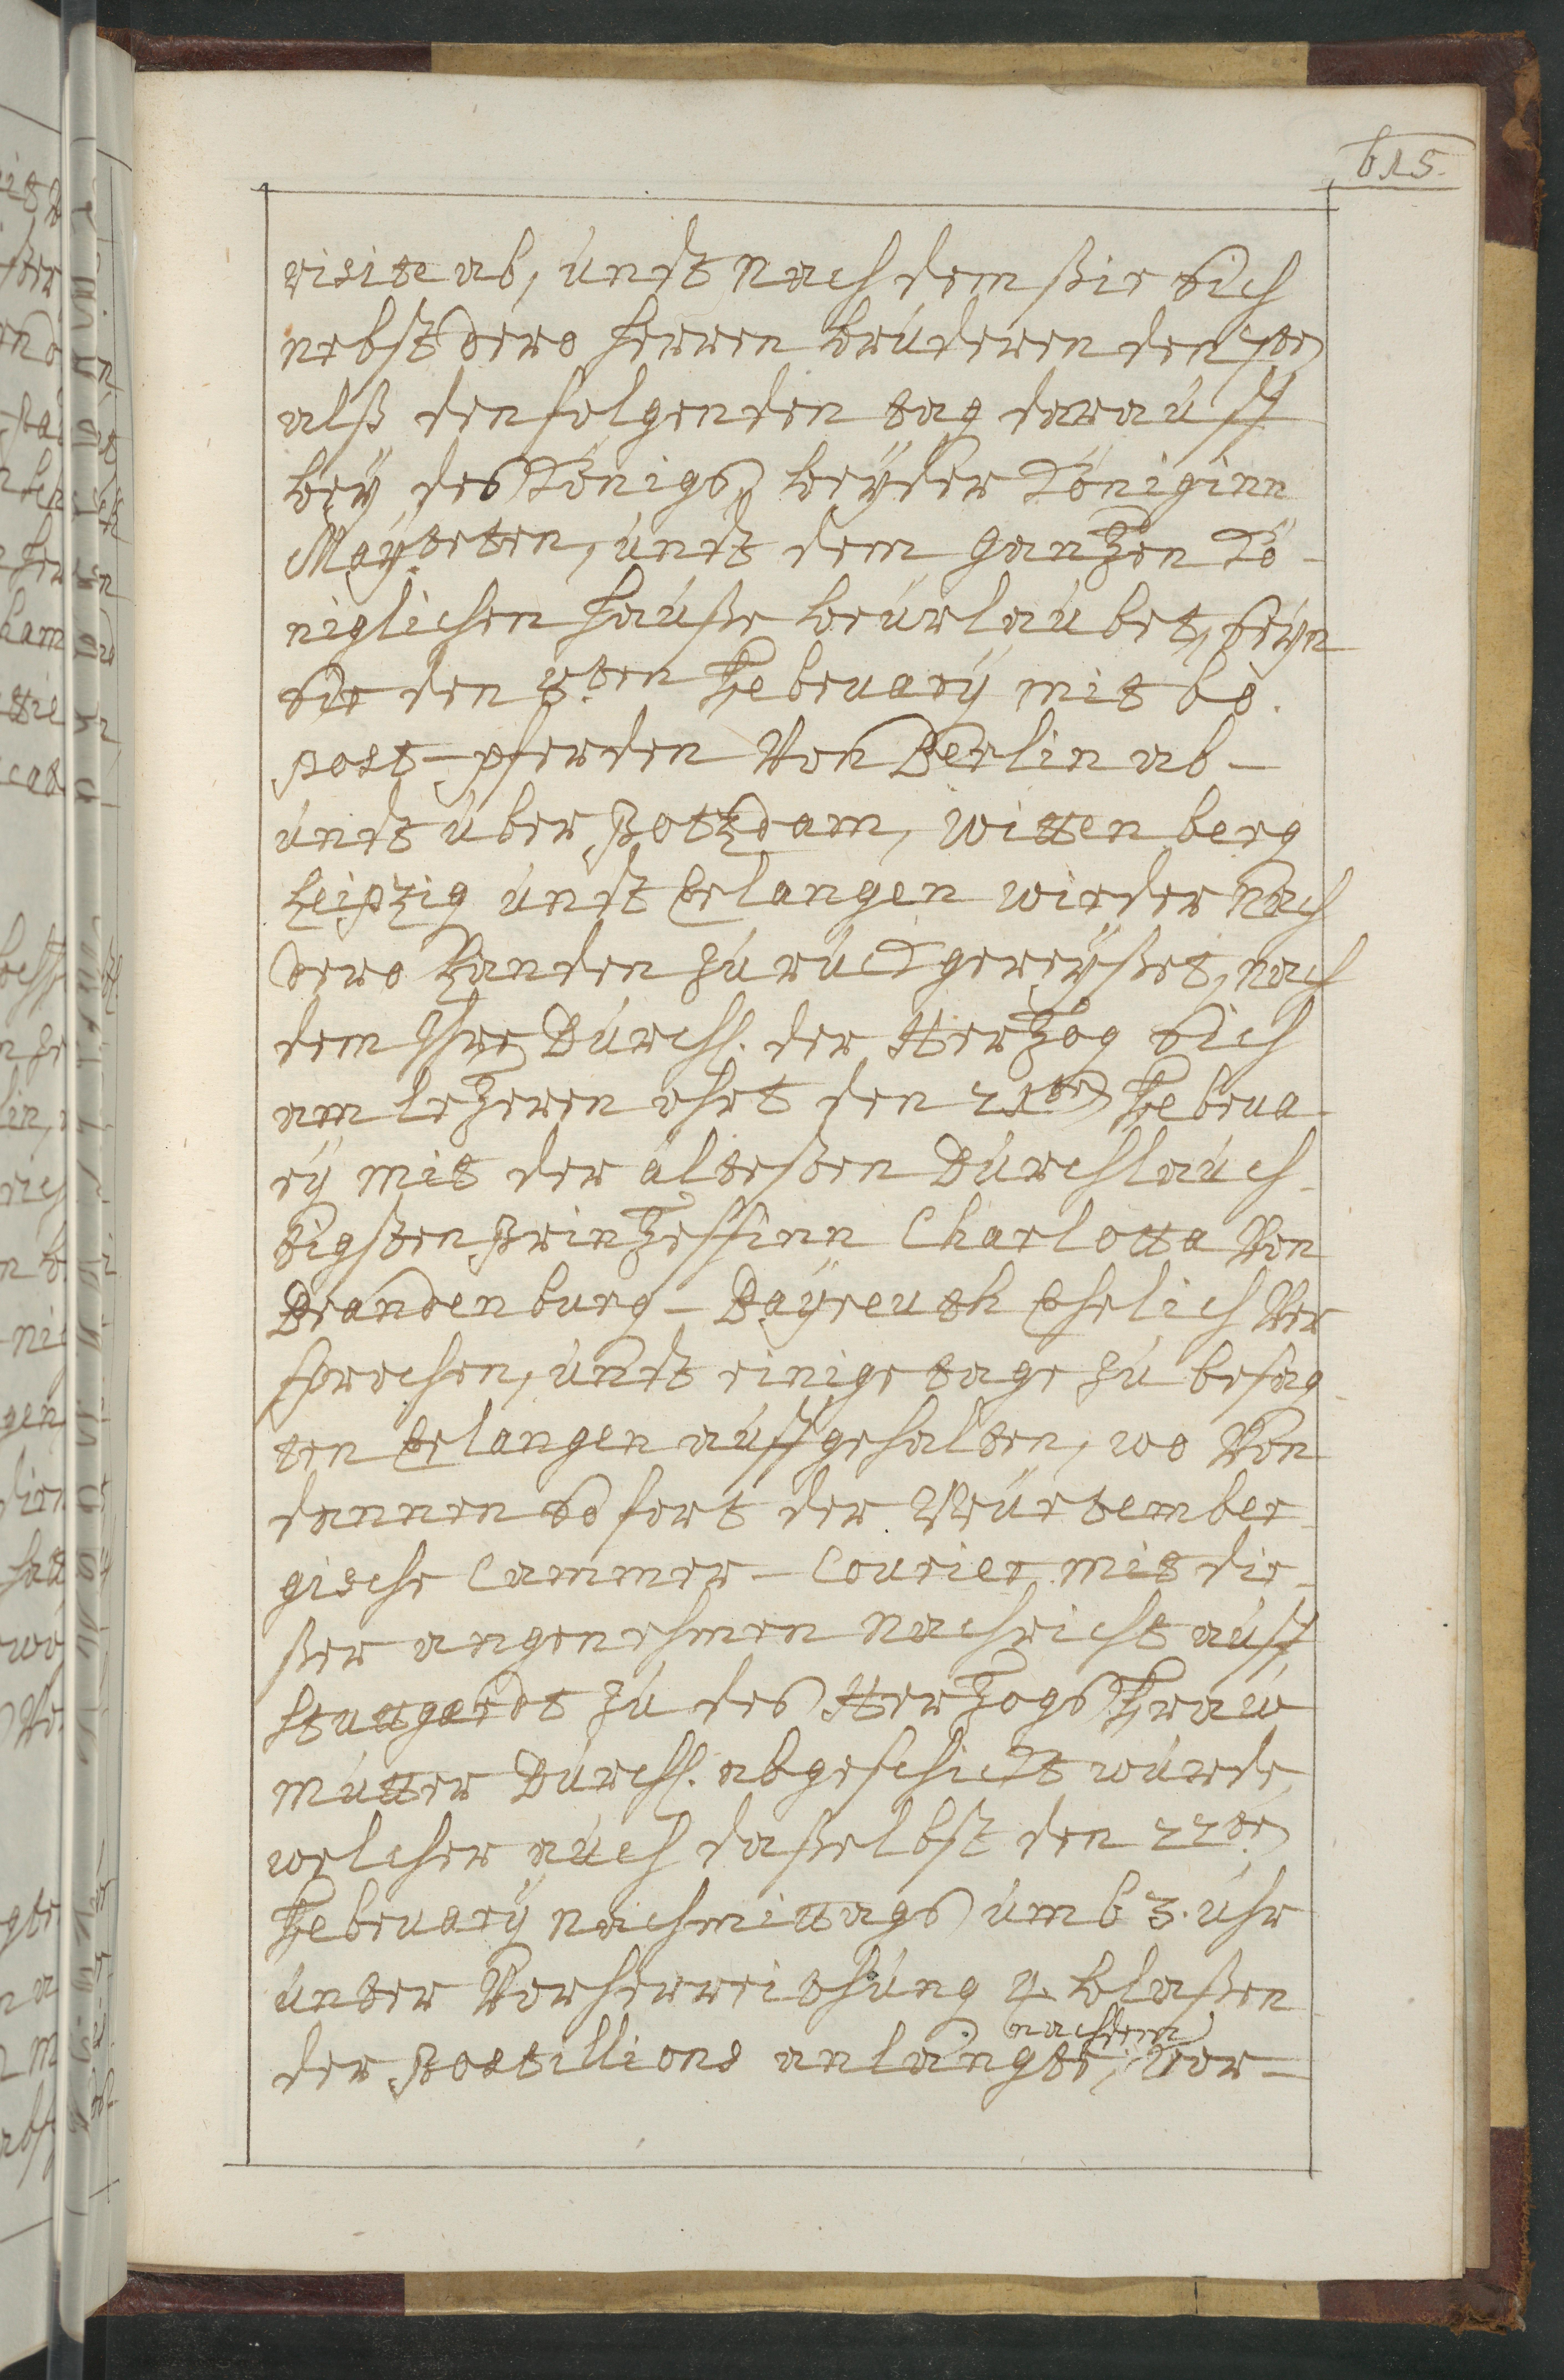 615.
visite ab, undt nach dem ßie sich
nebst dero herren brüderen den 7ten
alß den folgenden tag darauff
bey des Königs, beyder Königinn
Maÿsteten, undt dem gantzen Kö-
niglichen hauße beurlaubet, seyn
sie den 8ten Februarÿ mit 60.
post-pferden Von Berlin ab-
undt über Potzdam, Wittenberg
Leipzig undt Erlangen wieder nach
dero Landen zurückgereyßet, nach
dem Ihre Durchl. der Hertzog sich
am letzeren ohrt den 21ten Februa-
rÿ mit der ältesten Durchlauch-
tigsten Printzessinn Charlotta Von
Brandenburg-Baÿreuth Ehelich Ver
sprochen, undt einige tage zu besag
ten Erlangen auffgehalten, wo Von
dannen sofort der Würtember-
gische Cammer-Courier mit die-
ßer angenehmen nachricht auff
Stuttgardt zu des Hertzogs Fraw
mutter Durchl. abgeschickt wurde,
welcher auch daßelbst den 22ten
Februarÿ nachmittags umb 3. uhr
unter Vorherreithung 4 blaßen
nachdem
der Postillions anlangte, Vor-